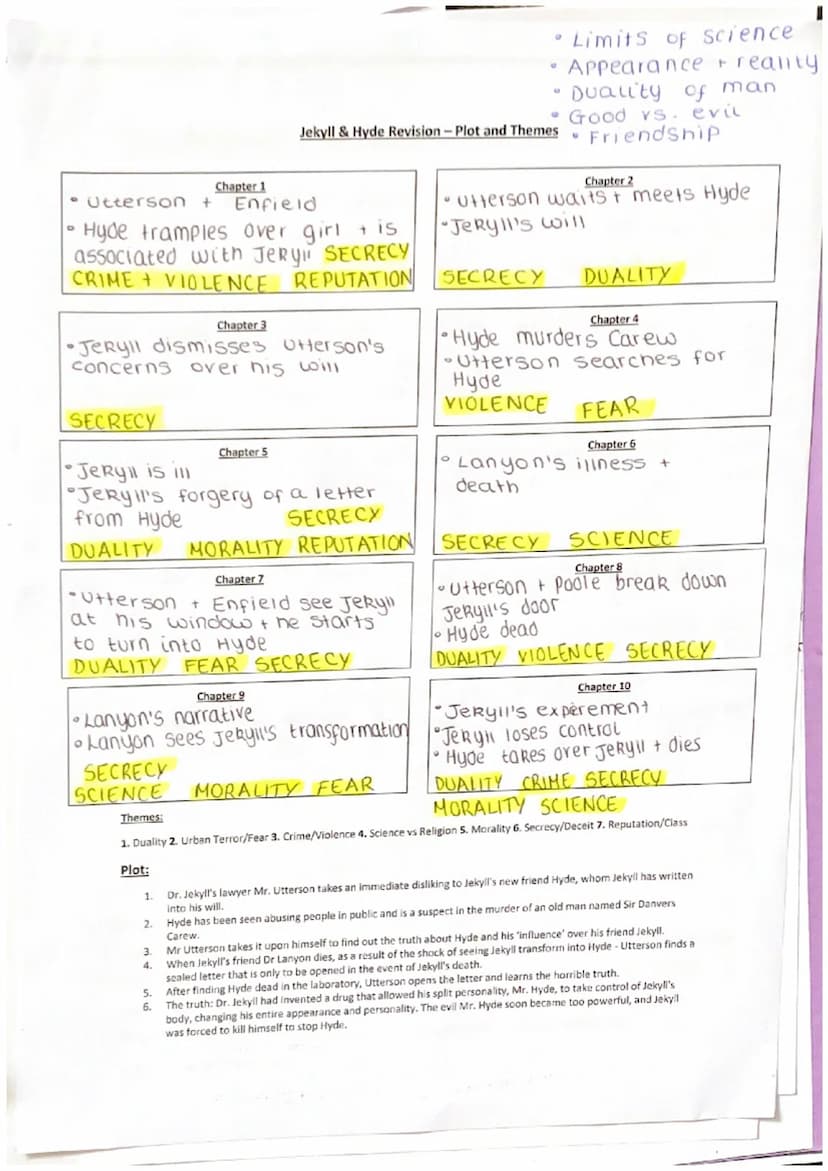 • Limits of science
• Appearance + reality
• Duality of man
• Good vs. evil
• Friendship
Jekyll & Hyde Revision – Plot and Themes
Chapter 1
• Utterson + Enfield
• Hyde tramples over girl + is
associated with Jekyll SECRECY
CRIME + VIOLENCE REPUTATION
Chapter 2
• Utterson waits + meets Hyde
• Jekyll's will
SECRECY DUALITY
Chapter 3
• Jekyll dismisses Utterson's
concerns over his will
SECRECY
Chapter 4
• Hyde murders Carew
• Utterson searches for
Hyde
VIOLENCE FEAR
Chapter 5
• Jekyll is ill
• Jekyll's forgery of a letter
from Hyde SECRECY
DUALITY MORALITY REPUTATION
Chapter 6
• Lanyon's illness +
death
SECRECY SCIENCE
Chapter 7
• Utterson + Enfield see Jekyll
at his window + he starts
to turn into Hyde
DUALITY FEAR SECRECY
Chapter 8
• Utterson + Poole break down
Jekyll's door
• Hyde dead
DUALITY VIOLENCE SECRECY
Chapter 9
• Lanyon's narrative
• Lanyon sees Jekyll's transformation
SECRECY
SCIENCE MORALITY FEAR
Chapter 10
• Jekyll's experement
• Jekyll loses control
• Hyde takes over Jekyll + dies
DUALITY CRIME SECRECY
MORALITY SCIENCE
Themes:
1. Duality 2. Urban Terror/Fear 3. Crime/Violence 4. Science vs Religion 5. Morality 6. Secrecy/Deceit 7. Reputation/Class
Plot:
1. Dr. Jekyll's lawyer Mr. Utterson takes an immediate disliking to Jekyll's new friend Hyde, whom Jekyll has written
into his will.
2. Hyde has been seen abusing people in public and is a suspect in the murder of an old man named Sir Danvers
Carew.
3. Mr Utterson takes it upon himself to find out the truth about Hyde and his 'influence' over his friend Jekyll.
4. When Jekyll's friend Dr Lanyon dies, as a result of the shock of seeing Jekyll transform into Hyde - Utterson finds a
sealed letter that is only to be opened in the event of Jekyll's death.
5. After finding Hyde dead in the laboratory, Utterson opens the letter and learns the horrible truth.
6. The truth: Dr. Jekyll had invented a drug that allowed his split personality, Mr. Hyde, to take control of Jekyll's
body, changing his entire appearance and personality. The evil Mr. Hyde soon became too powerful, and Jekyll
was forced to kill himself to stop Hyde.